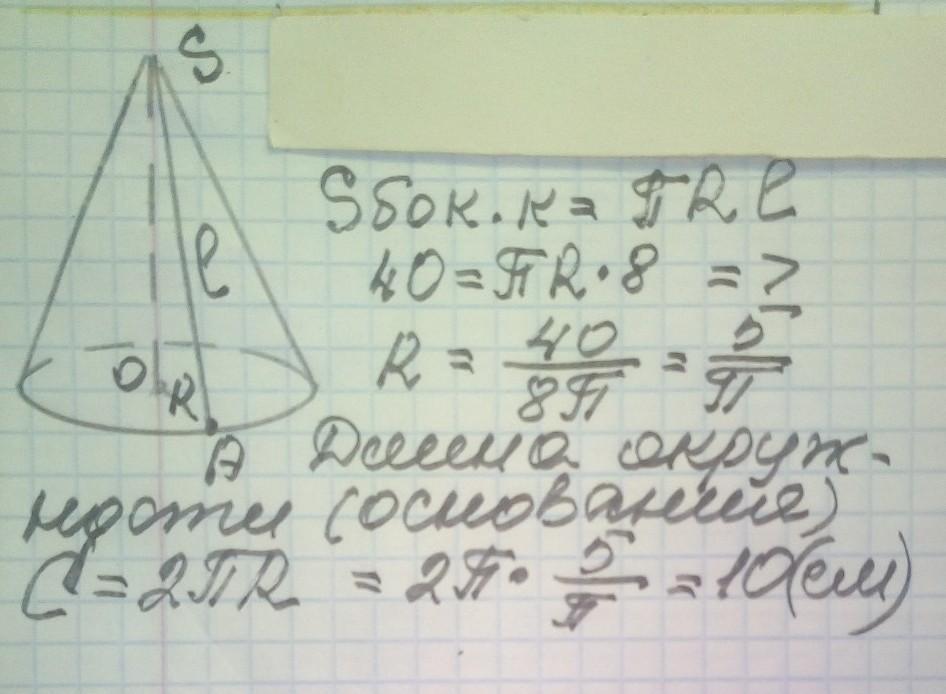 S
l
O
R
A
Sбок.к = πRl
40 = πR·8 =>
R = 40/8π = 5/π
Длина окруж-
ности (основания)
C = 2πR = 2π · 5/π = 10(см)